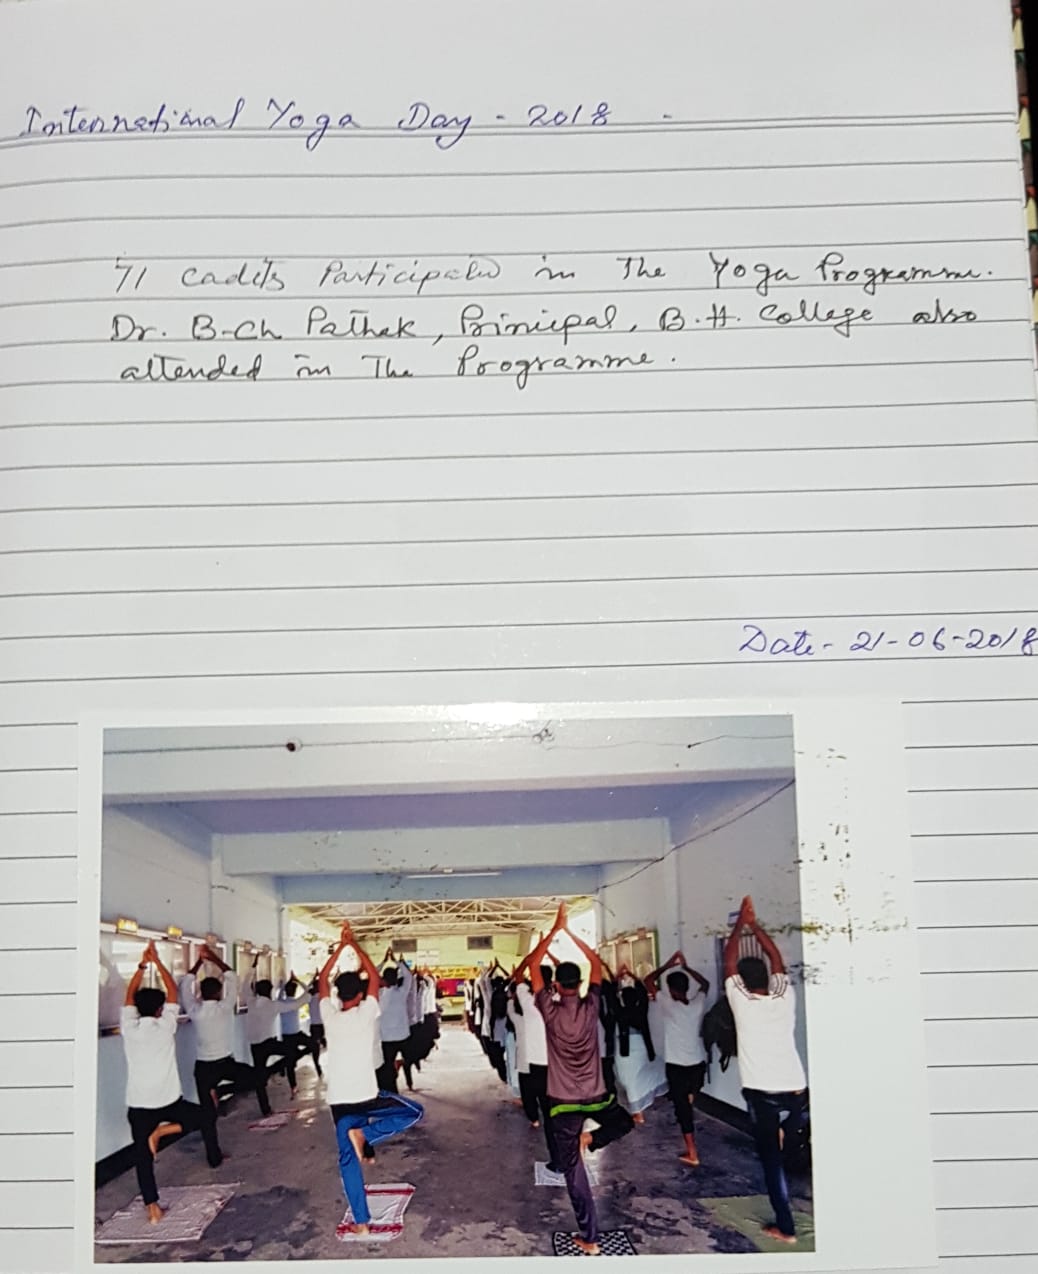 International Yoga Day - 2018 -
71 Cadets Participated in The Yoga Programme.
Dr. B.Ch Pathak, Prinicpal, B.H. College also
attended in The Programme.
Date - 21-06-2018